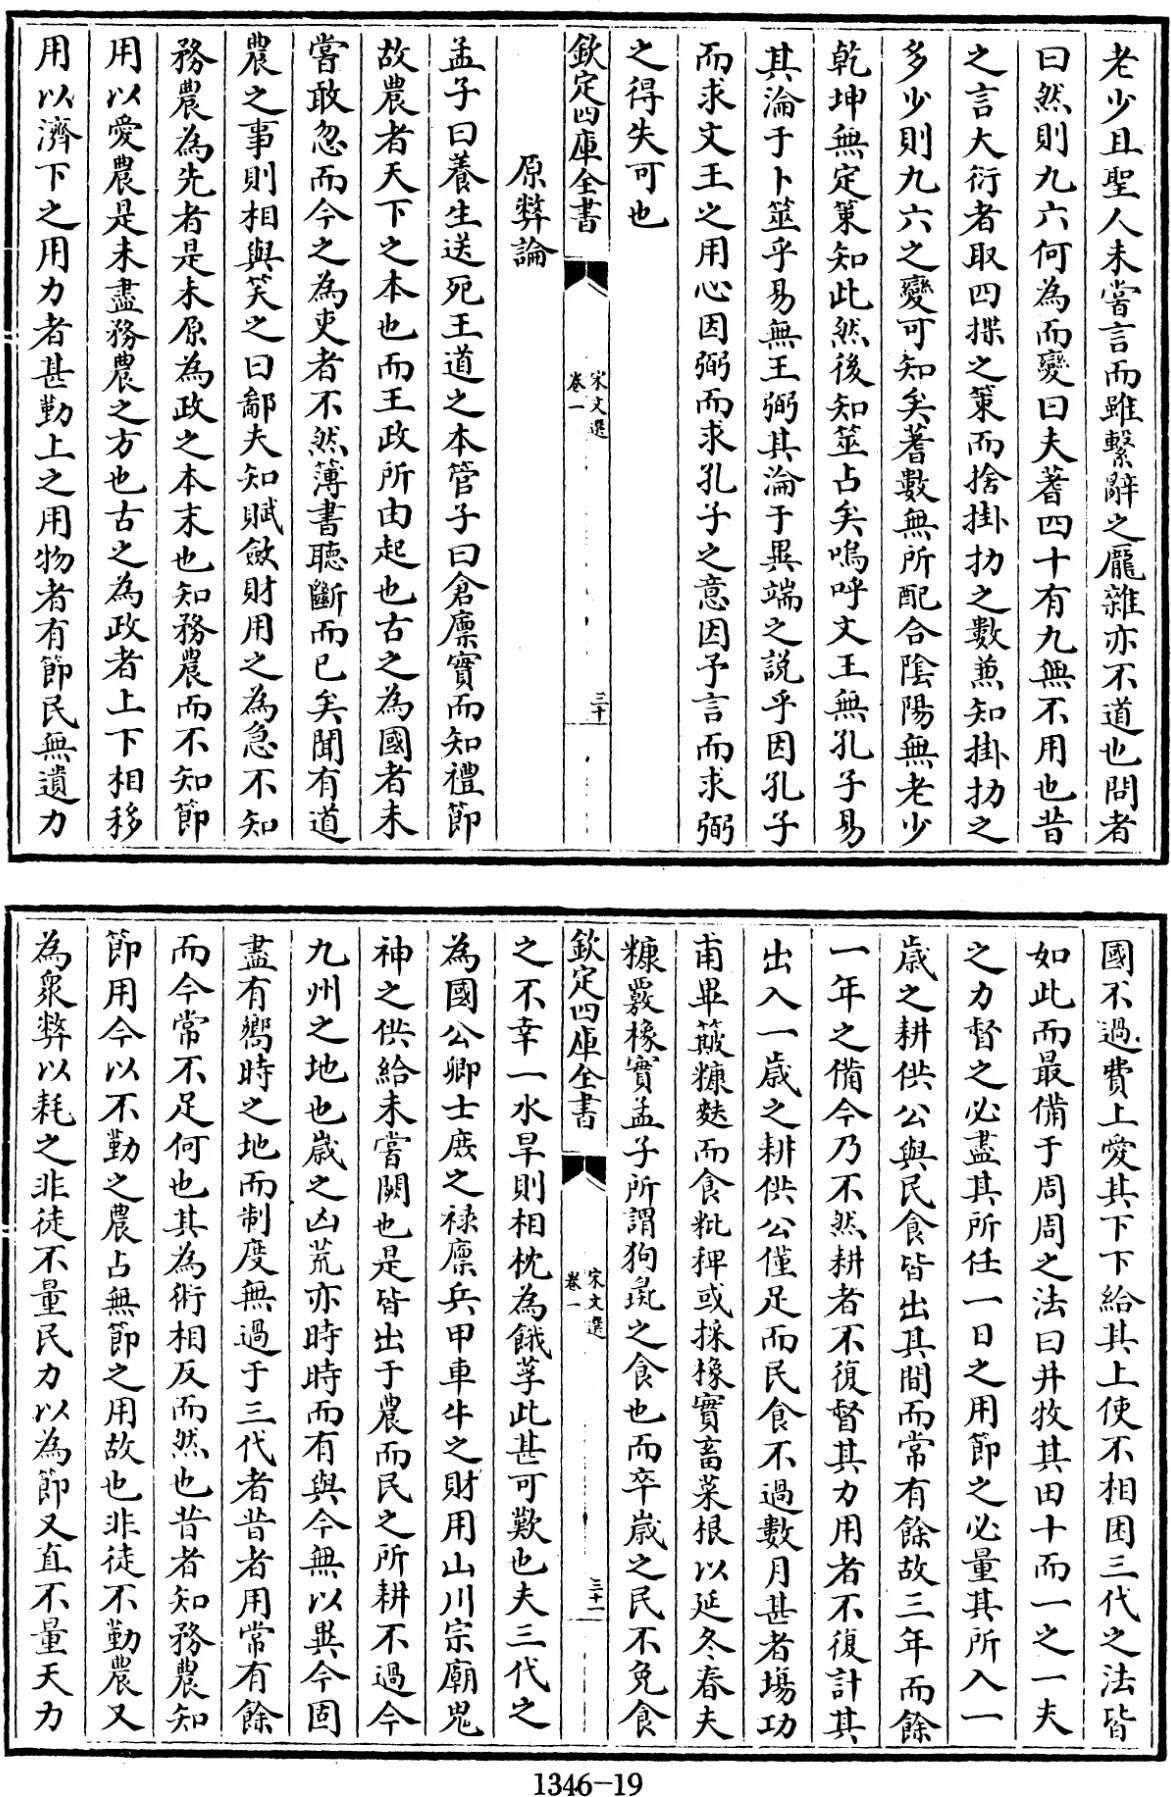 老少且聖人未嘗言而雖繫辭之龎雜亦不道也問者
曰然則九六何為而變曰夫蓍四十有九無不用也昔
之言大衍者取四揲之策而捨掛扐之數兼知掛扐之
多少則九六之變可知矣蓍數無所配合陰陽無老少
乾坤無定策知此然後知筮占矣嗚呼文王無孔子易
其淪于卜筮乎易無王弼其淪于異端之説乎因孔子
而求文王之用心因弼而求孔子之意因予言而求弼
之得失可也
欽定四庫全書
宋文選
卷一
三十
原弊論
孟子曰養生送死王道之本管子曰倉廪實而知禮節
故農者天下之本也而王政所由起也古之為國者未
嘗敢忽而今之為吏者不然簿書聽斷而已矣聞有道
農之事則相與笑之曰鄙夫知賦斂財用之為急不知
務農為先者是未原為政之本末也知務農而不知節
用以愛農是未盡務農之方也古之為政者上下相移
用以濟下之用力者甚勤上之用物者有節民無遺力
國不過費上愛其下下給其上使不相困三代之法皆
如此而最備于周周之法曰井牧其田十而一之一夫
之力督之必盡其所任一日之用節之必量其所入一
歳之耕供公與民食皆出其間而常有餘故三年而餘
一年之備今乃不然耕者不復督其力用者不復計其
出入一歳之耕供公僅足而民食不過數月甚者塲功
甫畢簸糠麩而食秕稗或採橡實畜菜根以延冬春夫
糠覈橡實孟子所謂狗彘之食也而卒歳之民不免食
欽定四庫全書
宋文選
卷一
三十一
之不幸一水旱則相枕為餓莩此甚可歎也夫三代之
為國公卿士庻之禄廪兵甲車牛之財用山川宗廟鬼
神之供給未嘗闕也是皆出于農而民之所耕不過今
九州之地也歳之凶荒亦時時而有與今無以異今固
盡有嚮時之地而制度無過于三代者昔者用常有餘
而今常不足何也其為術相反而然也昔者知務農知
節用今以不勤之農占無節之用故也非徒不勤農又
為衆弊以耗之非徒不量民力以為節又直不量天力
1346-19